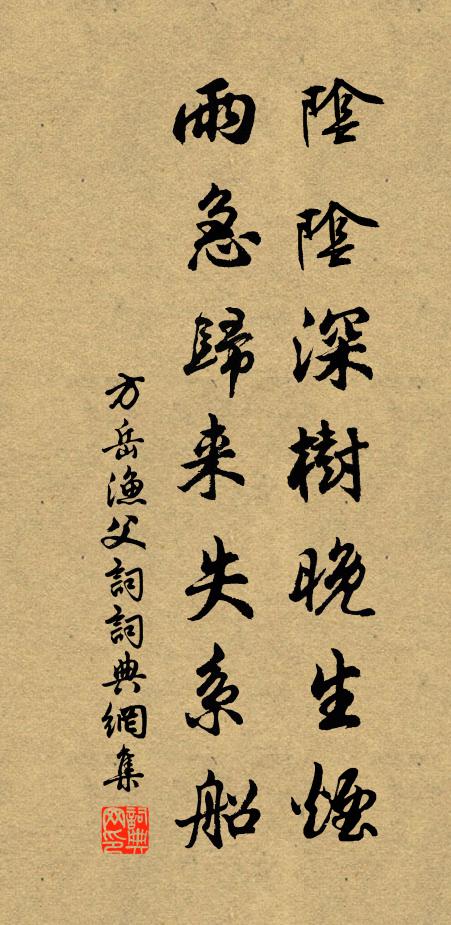 陰陰深樹晚生煙
雨急歸来失系船
方岳漁父詞詞典網集
詞典網印